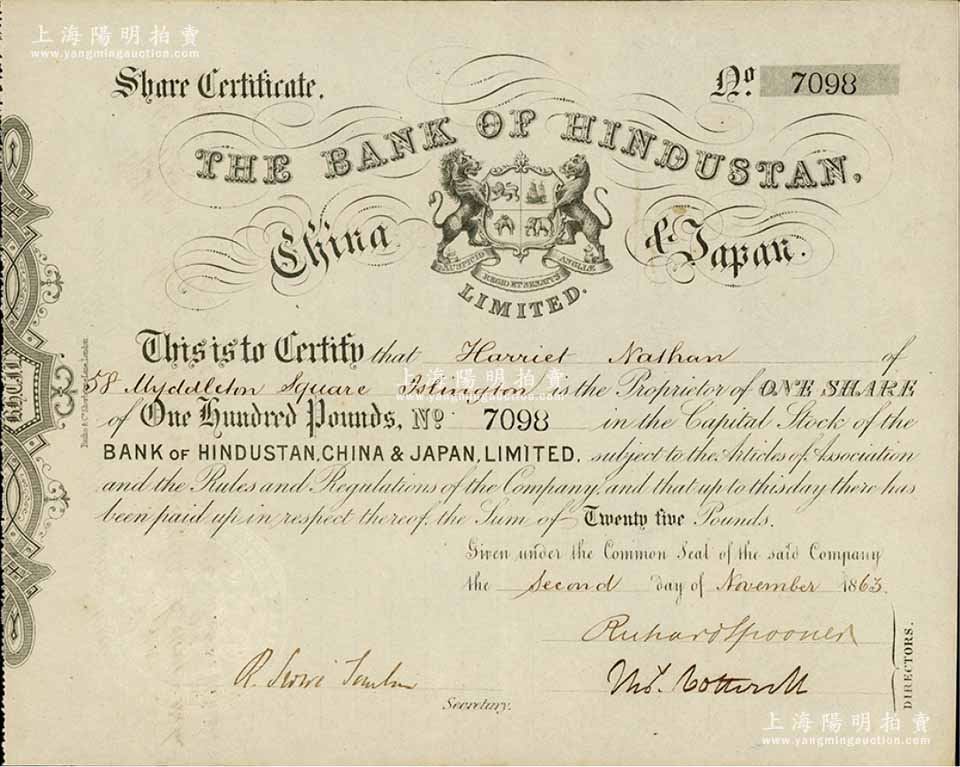 上海陽明拍賣
www.yangmingauction.com
Share Certificate.
No. 7098
THE BANK OF HINDUSTAN,
China & Japan.
AUSPICIO REGIS ET SENATUS ANGLIÆ
LIMITED.
This is to Certify that Harriet Nathan of
58 Myddleton Square Islington is the Proprietor of ONE SHARE
of One Hundred Pounds, No. 7098 in the Capital Stock of the
BANK OF HINDUSTAN, CHINA & JAPAN, LIMITED, subject to the Articles of Association
and the Rules and Regulations of the Company, and that up to this day there has
been paid up in respect thereof, the Sum of Twenty five Pounds.
Given under the Common Seal of the said Company
the Second day of November 1863.
Richard Spooner
Thos. Cotterill
DIRECTORS.
Secretary.
上海陽明拍賣
www.yangmingauction.com
上海陽明拍賣
www.yangmingauction.com